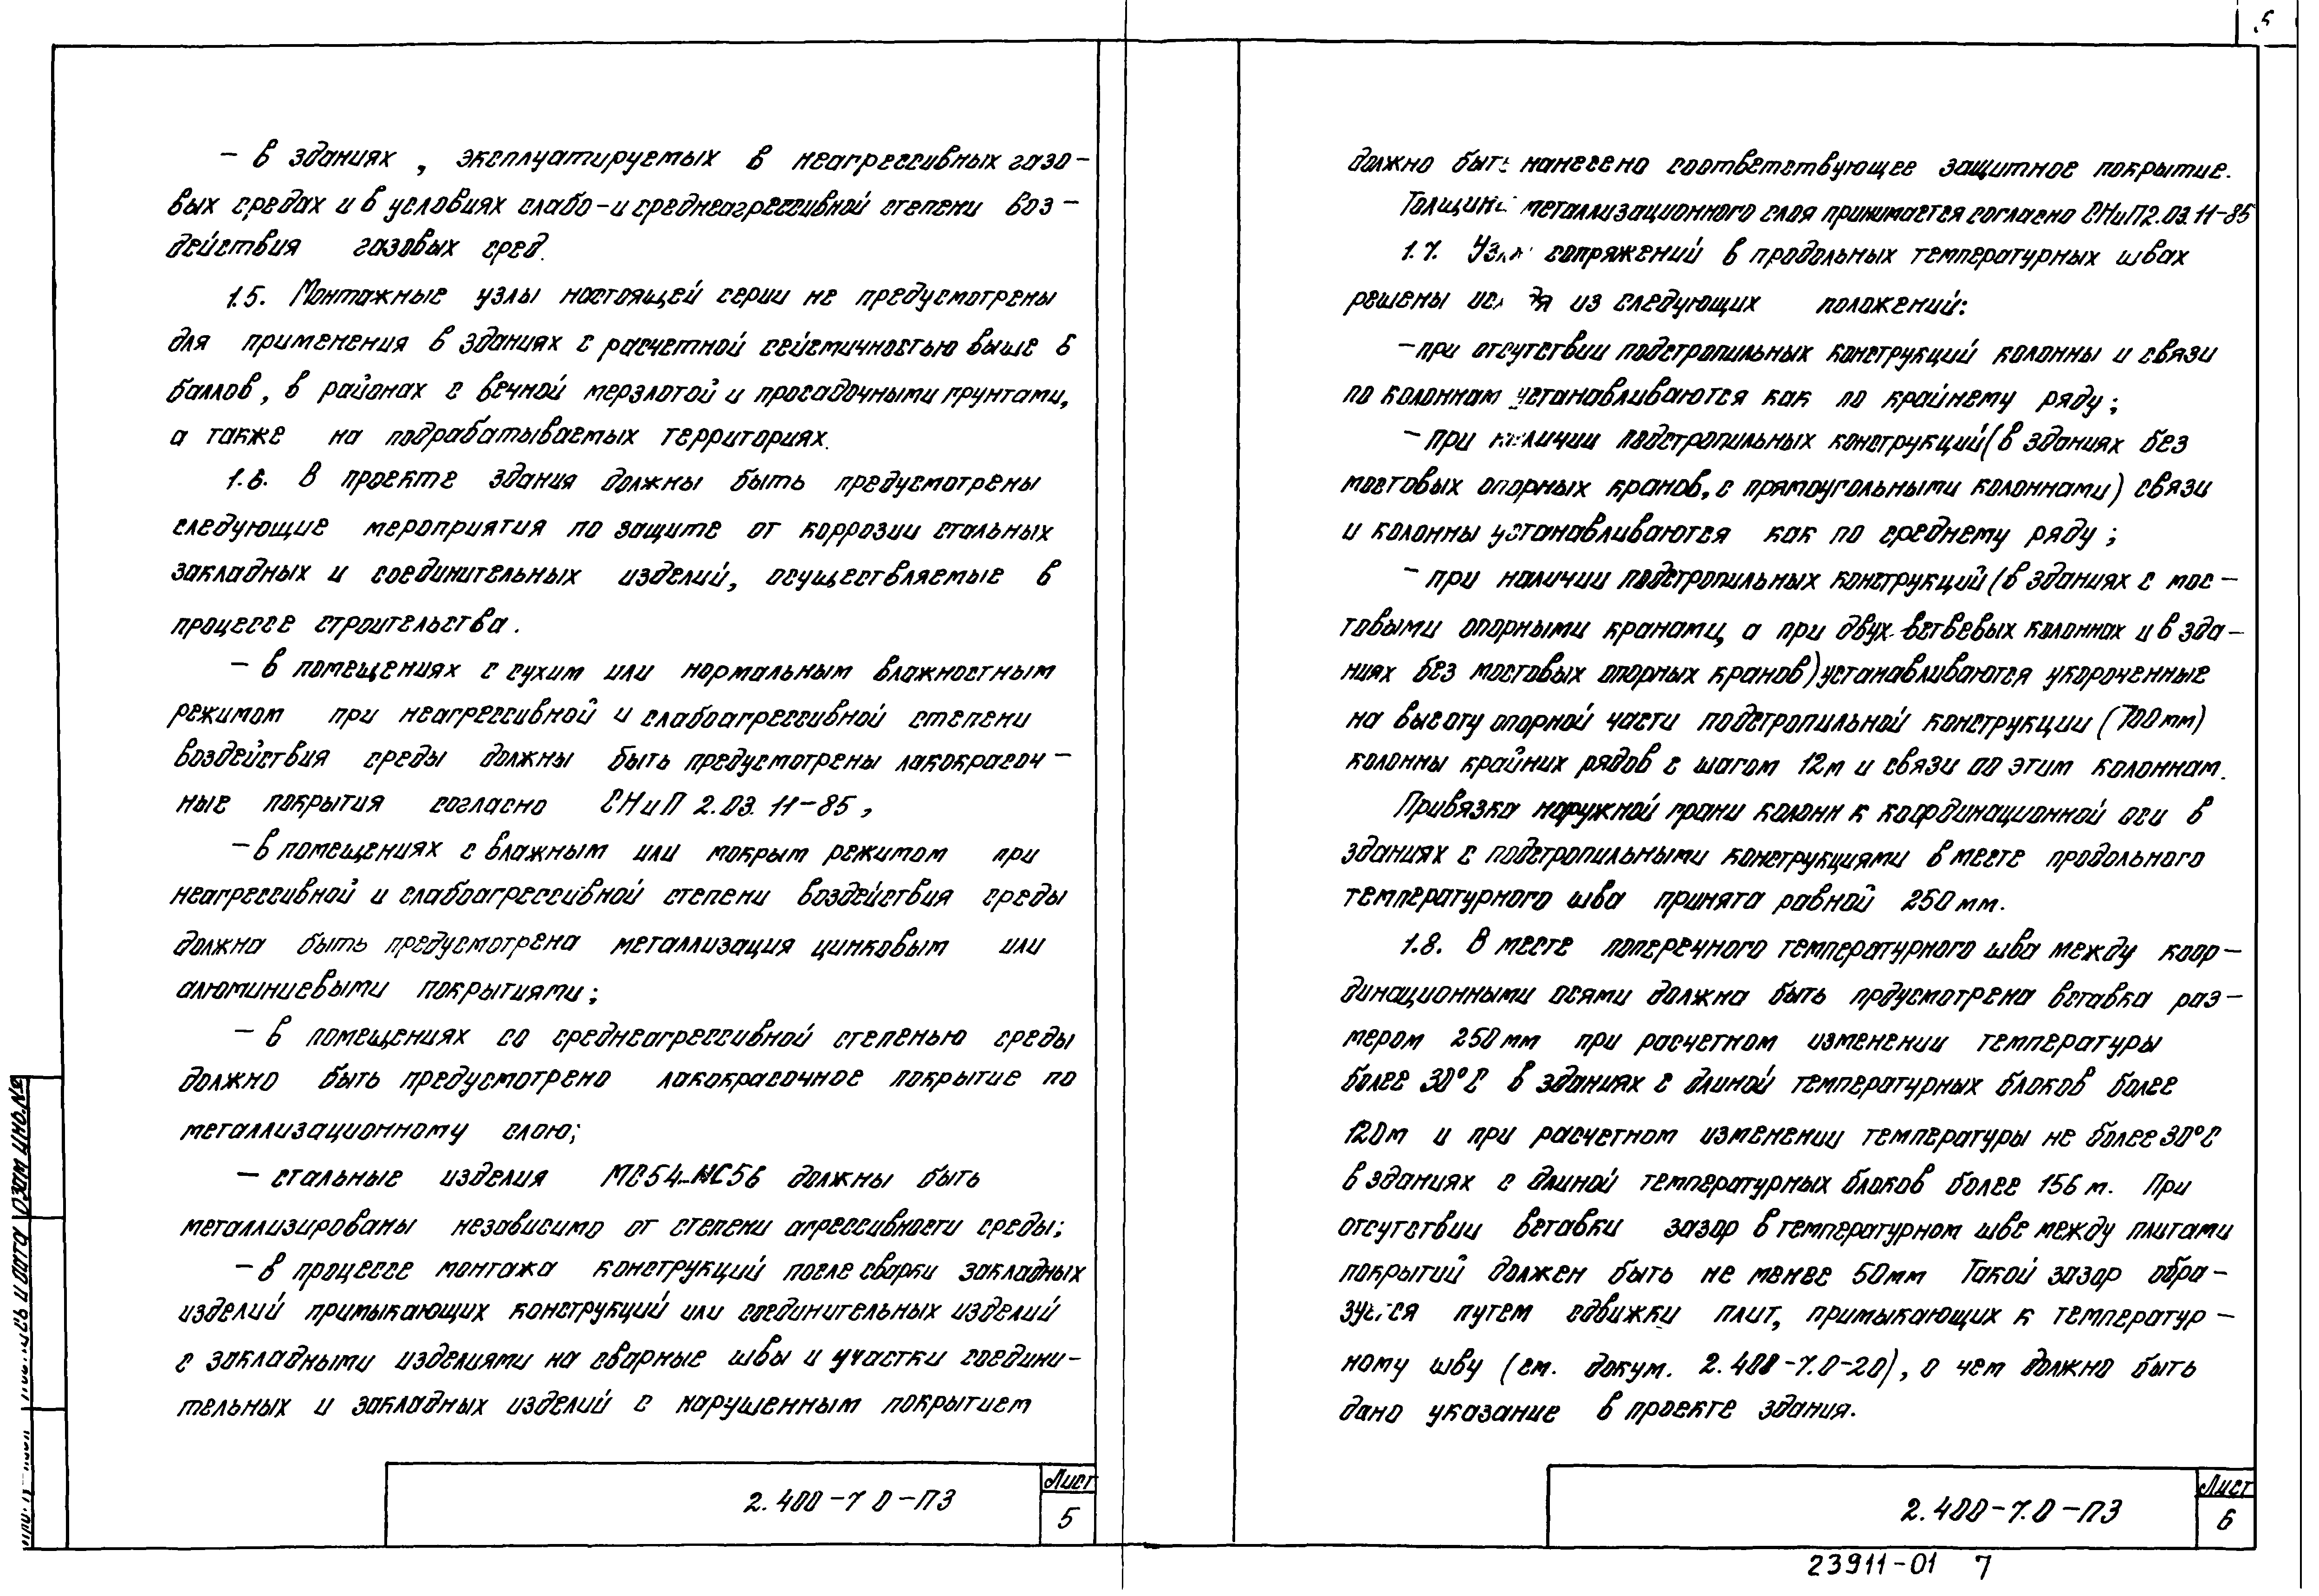 – в зданиях , эксплуатируемых в неагрессивных газо–
вых средах и в условиях слабо–и среднеагрессивной степени воз–
действия газовых сред.
1.5. Монтажные узлы настоящей серии не предусмотрены
для применения в зданиях с расчетной сейсмичностью выше 6
баллов, в районах с вечной мерзлотой и просадочными грунтами,
а также на подрабатываемых территориях.
1.6. В проекте здания должны быть предусмотрены
следующие мероприятия по защите от коррозии стальных
закладных и соединительных изделий, осуществляемые в
процессе строительства.
– в помещениях с сухим или нормальным влажностным
режимом при неагрессивной и слабоагрессивной степени
воздействия среды должны быть предусмотрены лакокрасоч–
ные покрытия согласно СНиП 2.03.11–85,
– в помещениях с влажным или мокрым режимом при
неагрессивной и слабоагрессивной степени воздействия среды
должна быть предусмотрена металлизация цинковым или
алюминиевыми покрытиями;
– в помещениях со среднеагрессивной степенью среды
должно быть предусмотрено лакокрасочное покрытие по
металлизационному слою;
– стальные изделия МС54...МС56 должны быть
металлизированы независимо от степени агрессивности среды;
– в процессе монтажа конструкций после сварки закладных
изделий примыкающих конструкций или соединительных изделий
с закладными изделиями на сварные швы и участки соедини–
тельных и закладных изделий с нарушенным покрытием
2.400–7 0–ПЗ
Лист
5
должно быть нанесено соответствующее защитное покрытие.
Толщина металлизационного слоя принимается согласно СНиП2.03.11–85
1.7. Узлы сопряжений в продольных температурных швах
решены исходя из следующих положений:
– при отсутствии подстропильных конструкций колонны и связи
по колоннам устанавливаются как по крайнему ряду;
– при наличии подстропильных конструкций (в зданиях без
мостовых опорных кранов, с прямоугольными колоннами) связи
и колонны устанавливаются как по среднему ряду;
– при наличии подстропильных конструкций (в зданиях с мос–
товыми опорными кранами, а при двух-ветвевых колоннах и в зда–
ниях без мостовых опорных кранов) устанавливаются укороченные
на высоту опорной части подстропильной конструкции (700мм)
колонны крайних рядов с шагом 12м и связи по этим колоннам.
Привязка наружной грани колонн к координационной оси в
зданиях с подстропильными конструкциями в месте продольного
температурного шва принята равной 250мм.
1.8. В месте поперечного температурного шва между коор–
динационными осями должна быть прдусмотрена вставка раз–
мером 250мм при расчетном изменении температуры
более 30°С в зданиях с длиной температурных блоков более
120м и при расчетном изменении температуры не более 30°С
в зданиях с длиной температурных блоков более 156 м. При
отсутствии вставки зазор в температурном шве между плитами
покрытий должен быть не менее 50мм Такой зазор обра–
зуется путем сдвижки плит, примыкающих к температур–
ному шву (см. докум. 2.400–7.0–20), о чем должно быть
дано указание в проекте здания.
2.400–7.0–ПЗ
Лист
6
23911–01 7
взам инв.№
и дата